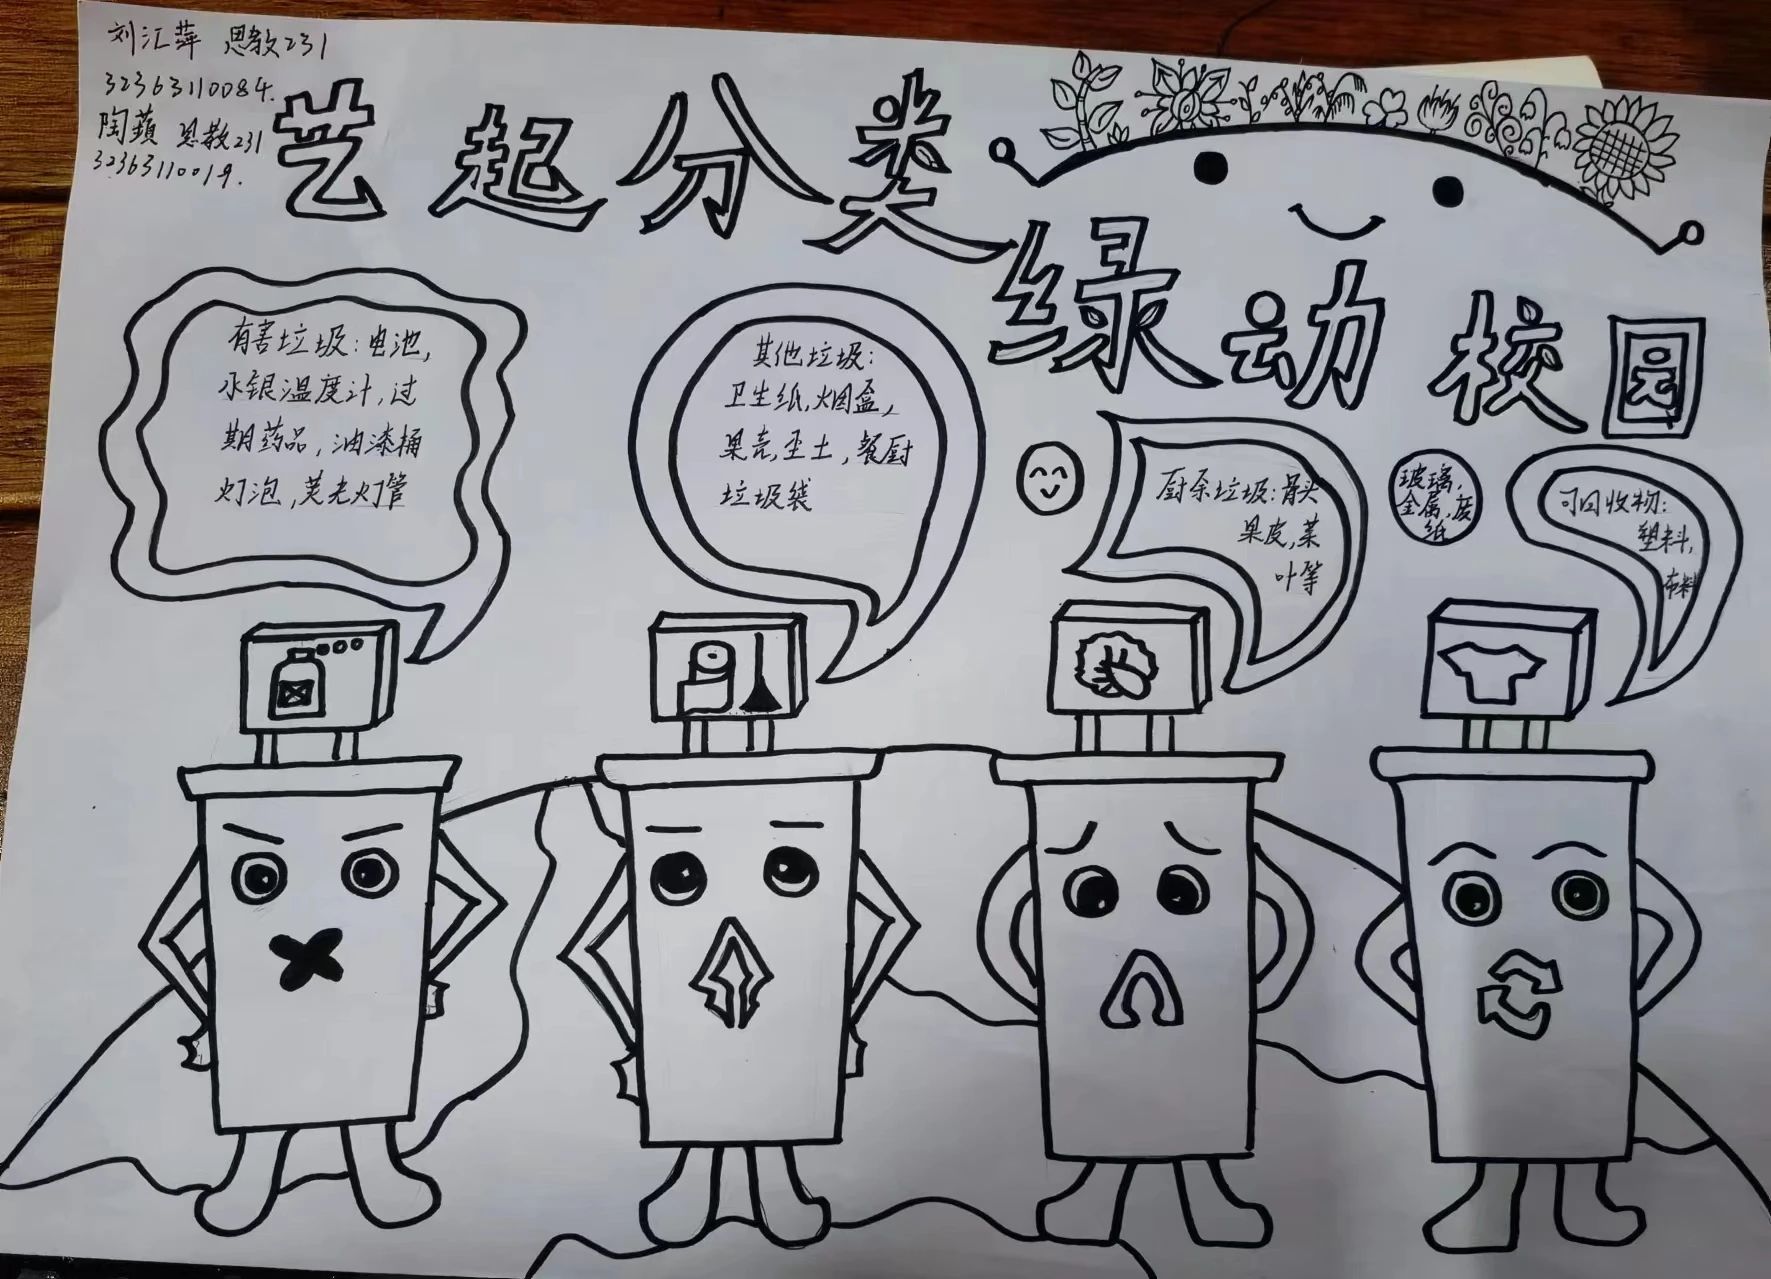 刘汇萍 思教231
32363110084.
陶蘋 思教231
32363110019.
艺起分类
绿动校园
有害垃圾:电池,
水银温度计,过
期药品,油漆桶
灯泡,荧光灯管
其他垃圾:
卫生纸,烟盒,
果壳,尘土,餐厨
垃圾袋
厨余垃圾:骨头
果皮,菜
叶等
玻璃,
金属,废
纸
可回收物:
塑料,
布料